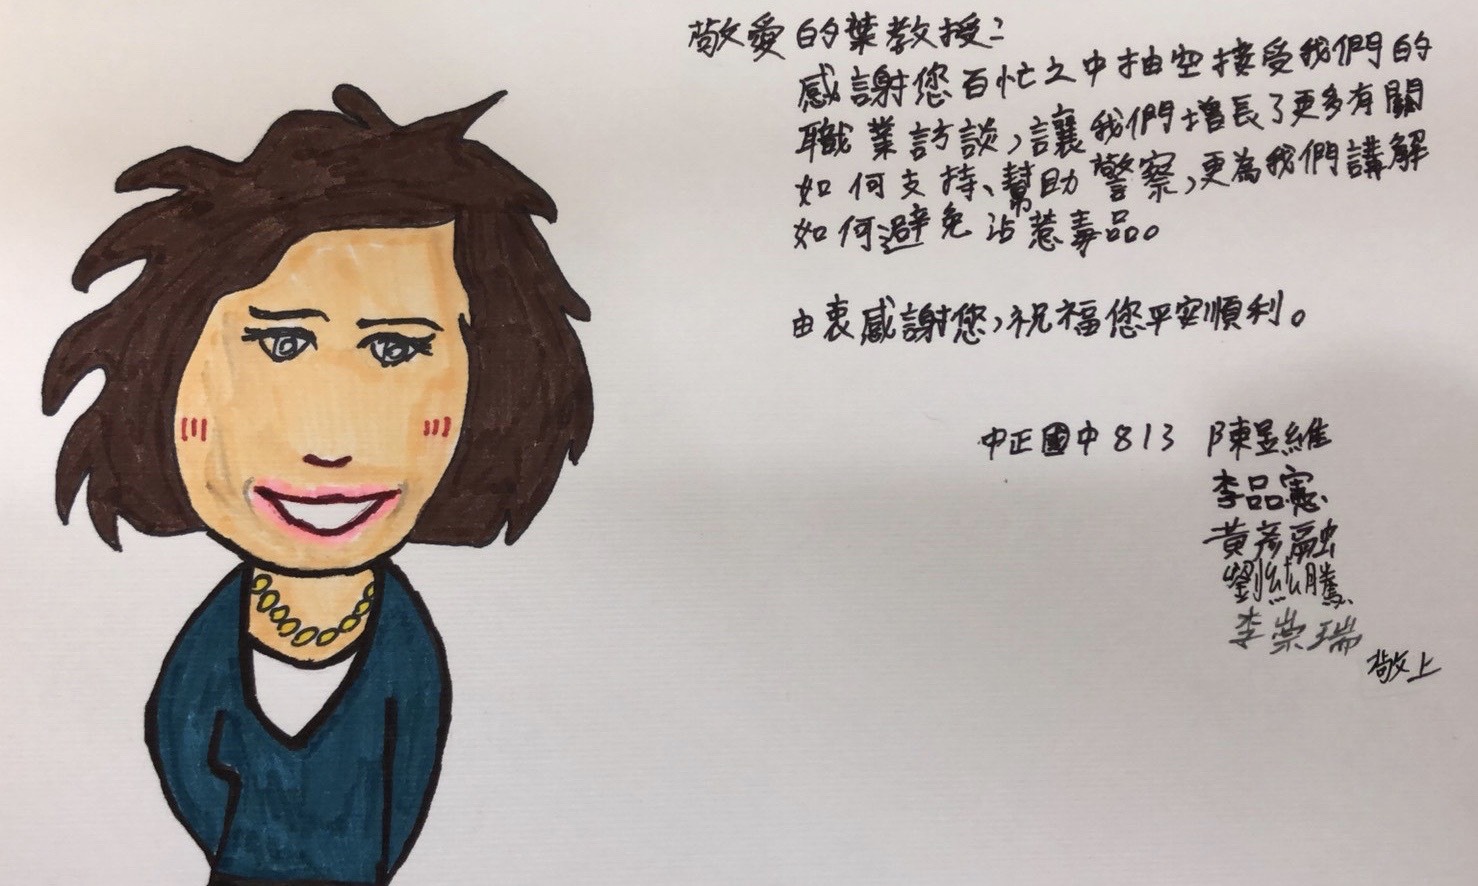 敬愛的葉教授：
感謝您百忙之中抽空接受我們的
職業訪談，讓我們增長了更多有關
如何支持、幫助警察，更為我們講解
如何避免沾惹毒品。
由衷感謝您，祝福您平安順利。
中正國中813 陳昱維
李品憲
黃彥融
劉紘騰
李崇瑞
敬上